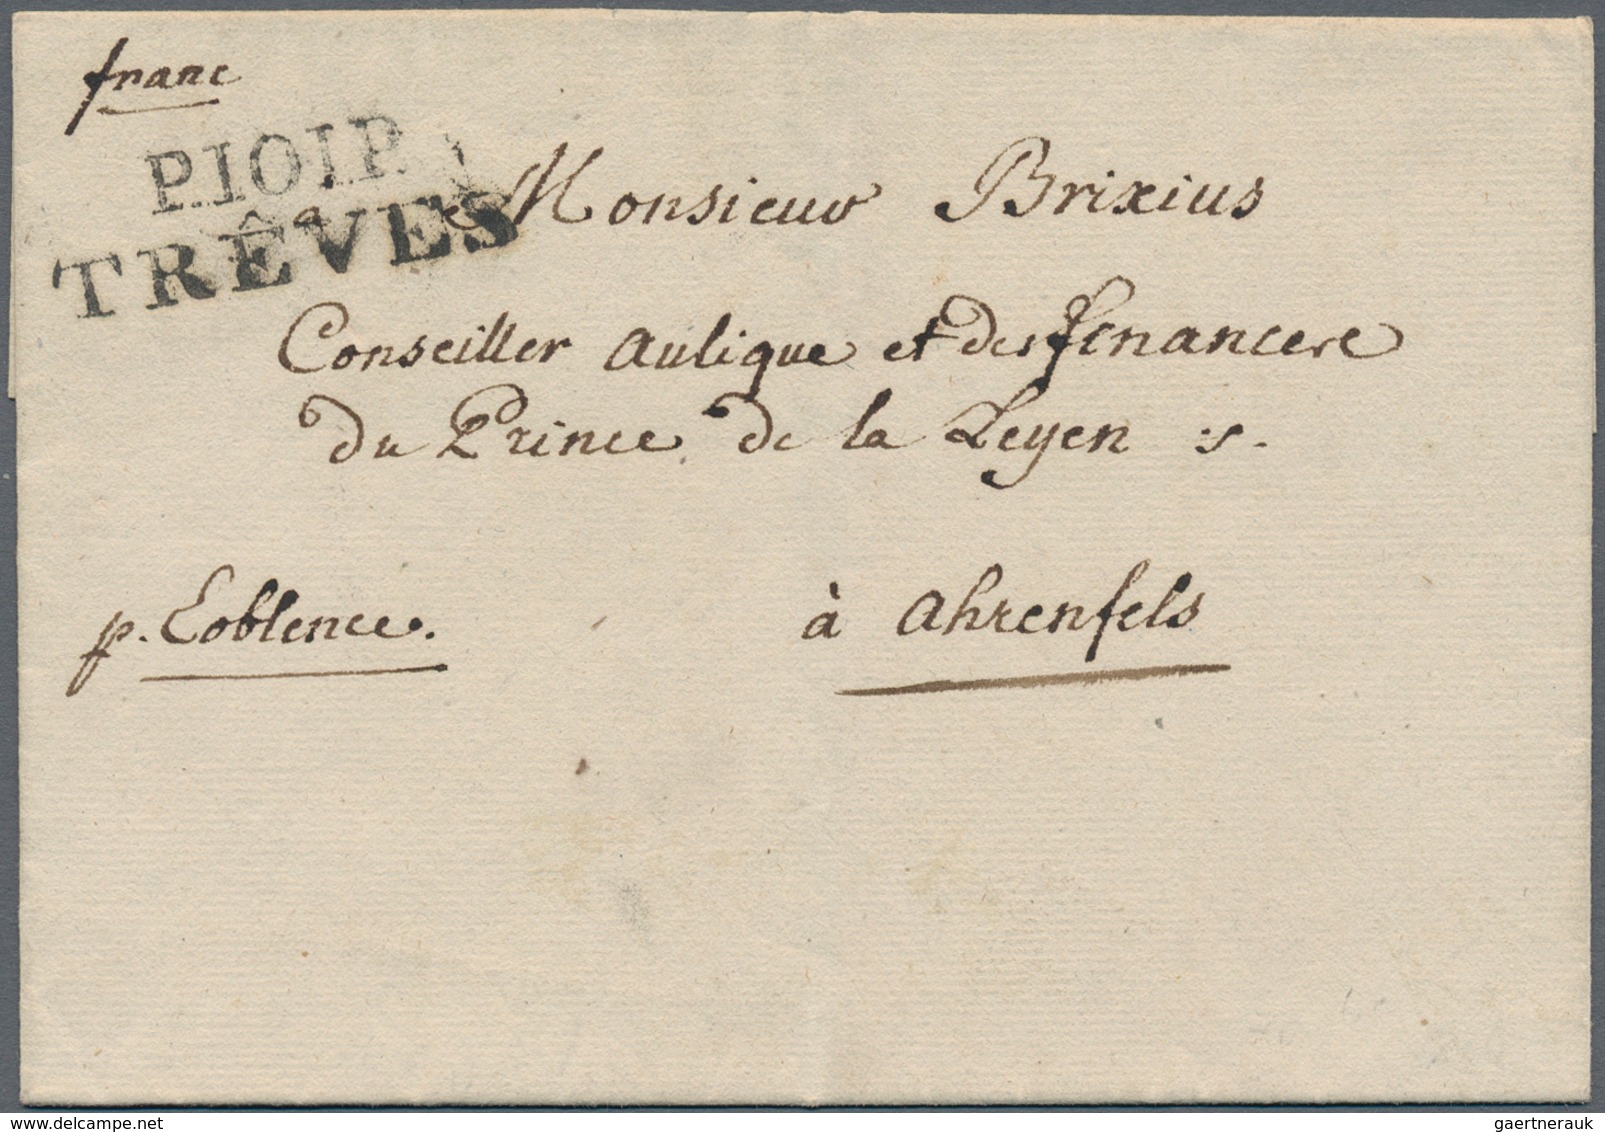 franc
P.101.P.
TRÊVES
a Monsieur Brixius
Conseiller aulique et des finances
du Prince de la Leyen
p. Coblence.
à Ahrenfels
gaertnerauk